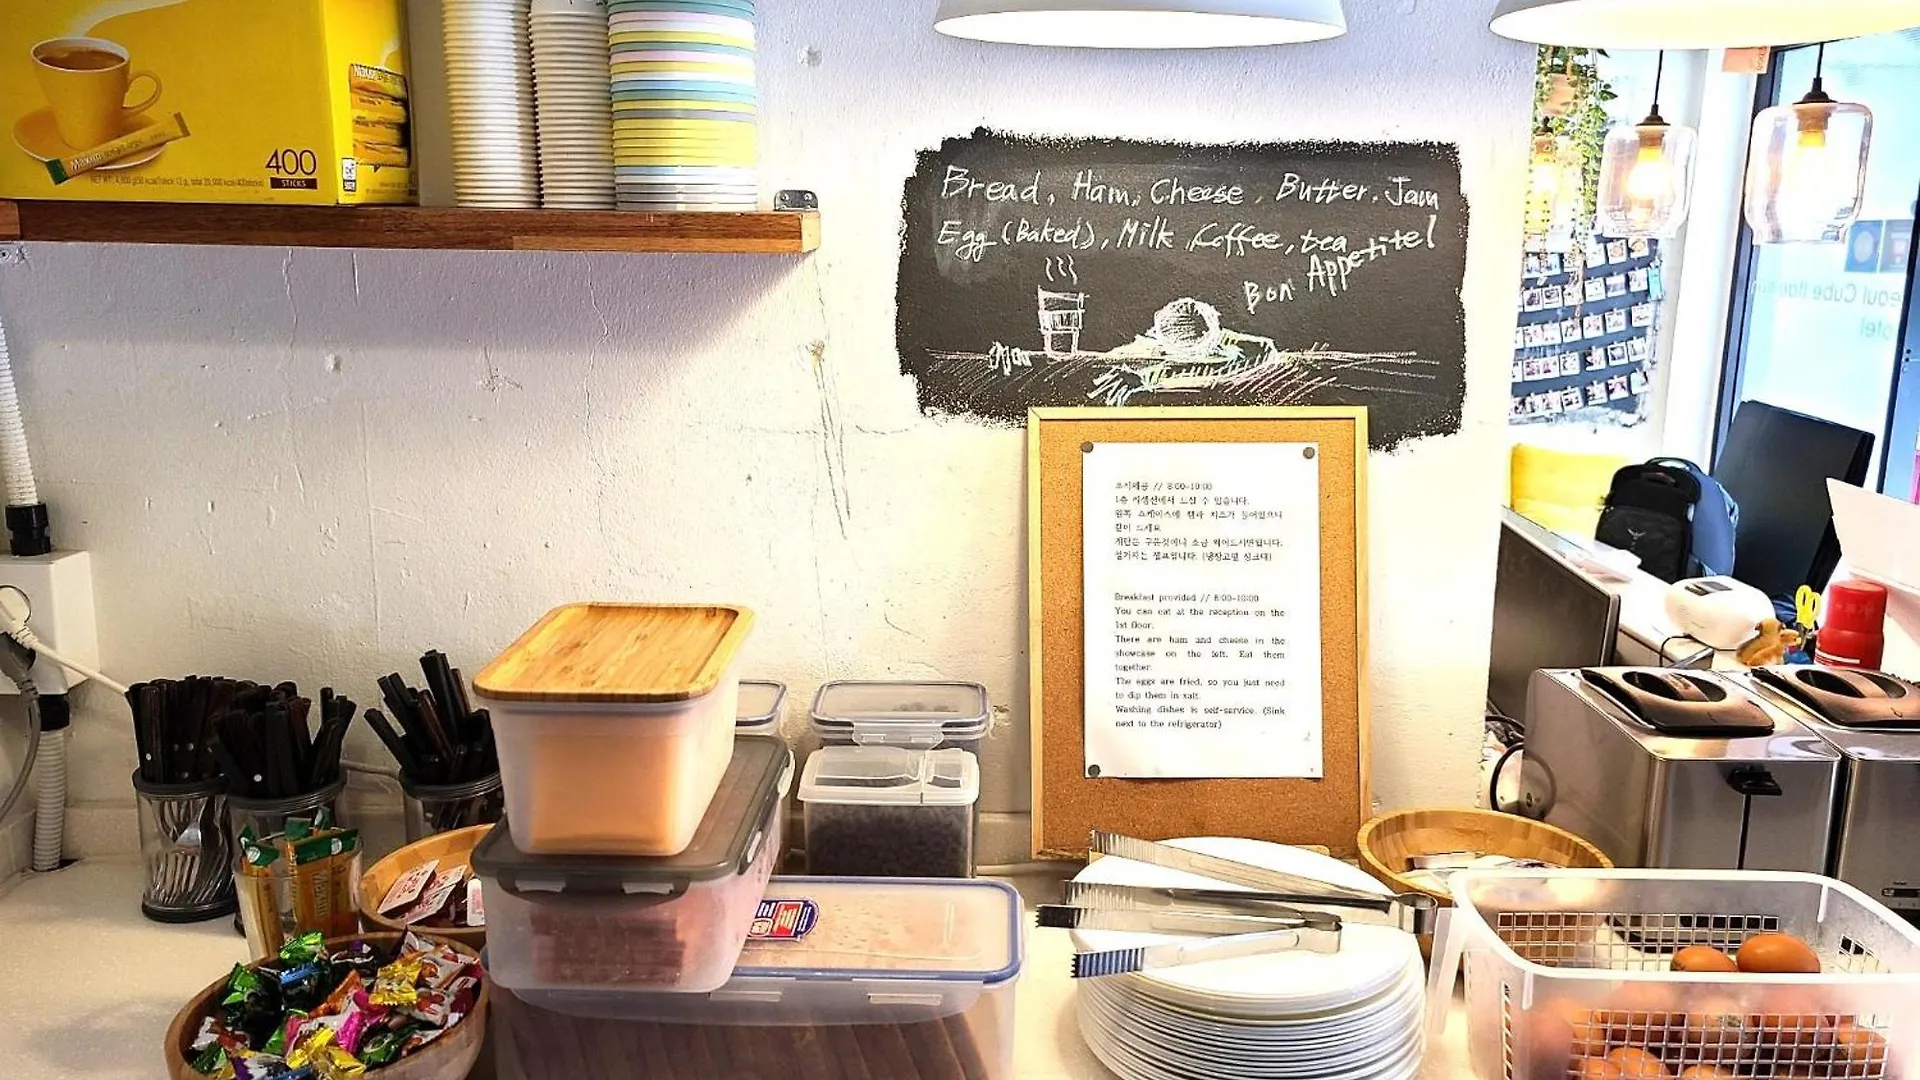 400
STICKS
Maxim
Bread, Ham, Cheese, Butter, Jam
Egg (Baked), Milk, Coffee, tea
Bon Appetite!
조식제공 // 8:00-10:00
1층 리셉션에서 드실 수 있습니다.
왼쪽 쇼케이스에 햄과 치즈가 들어있으니
같이 드세요.
계란은 구운것이니 소금 찍어드시면됩니다.
설거지는 셀프입니다. (냉장고옆 싱크대)
Breakfast provided // 8:00-10:00
You can eat at the reception on the
1st floor.
There are ham and cheese in the
showcase on the left. Eat them
together.
The eggs are fried, so you just need
to dip them in salt.
Washing dishes is self-service. (Sink
next to the refrigerator)